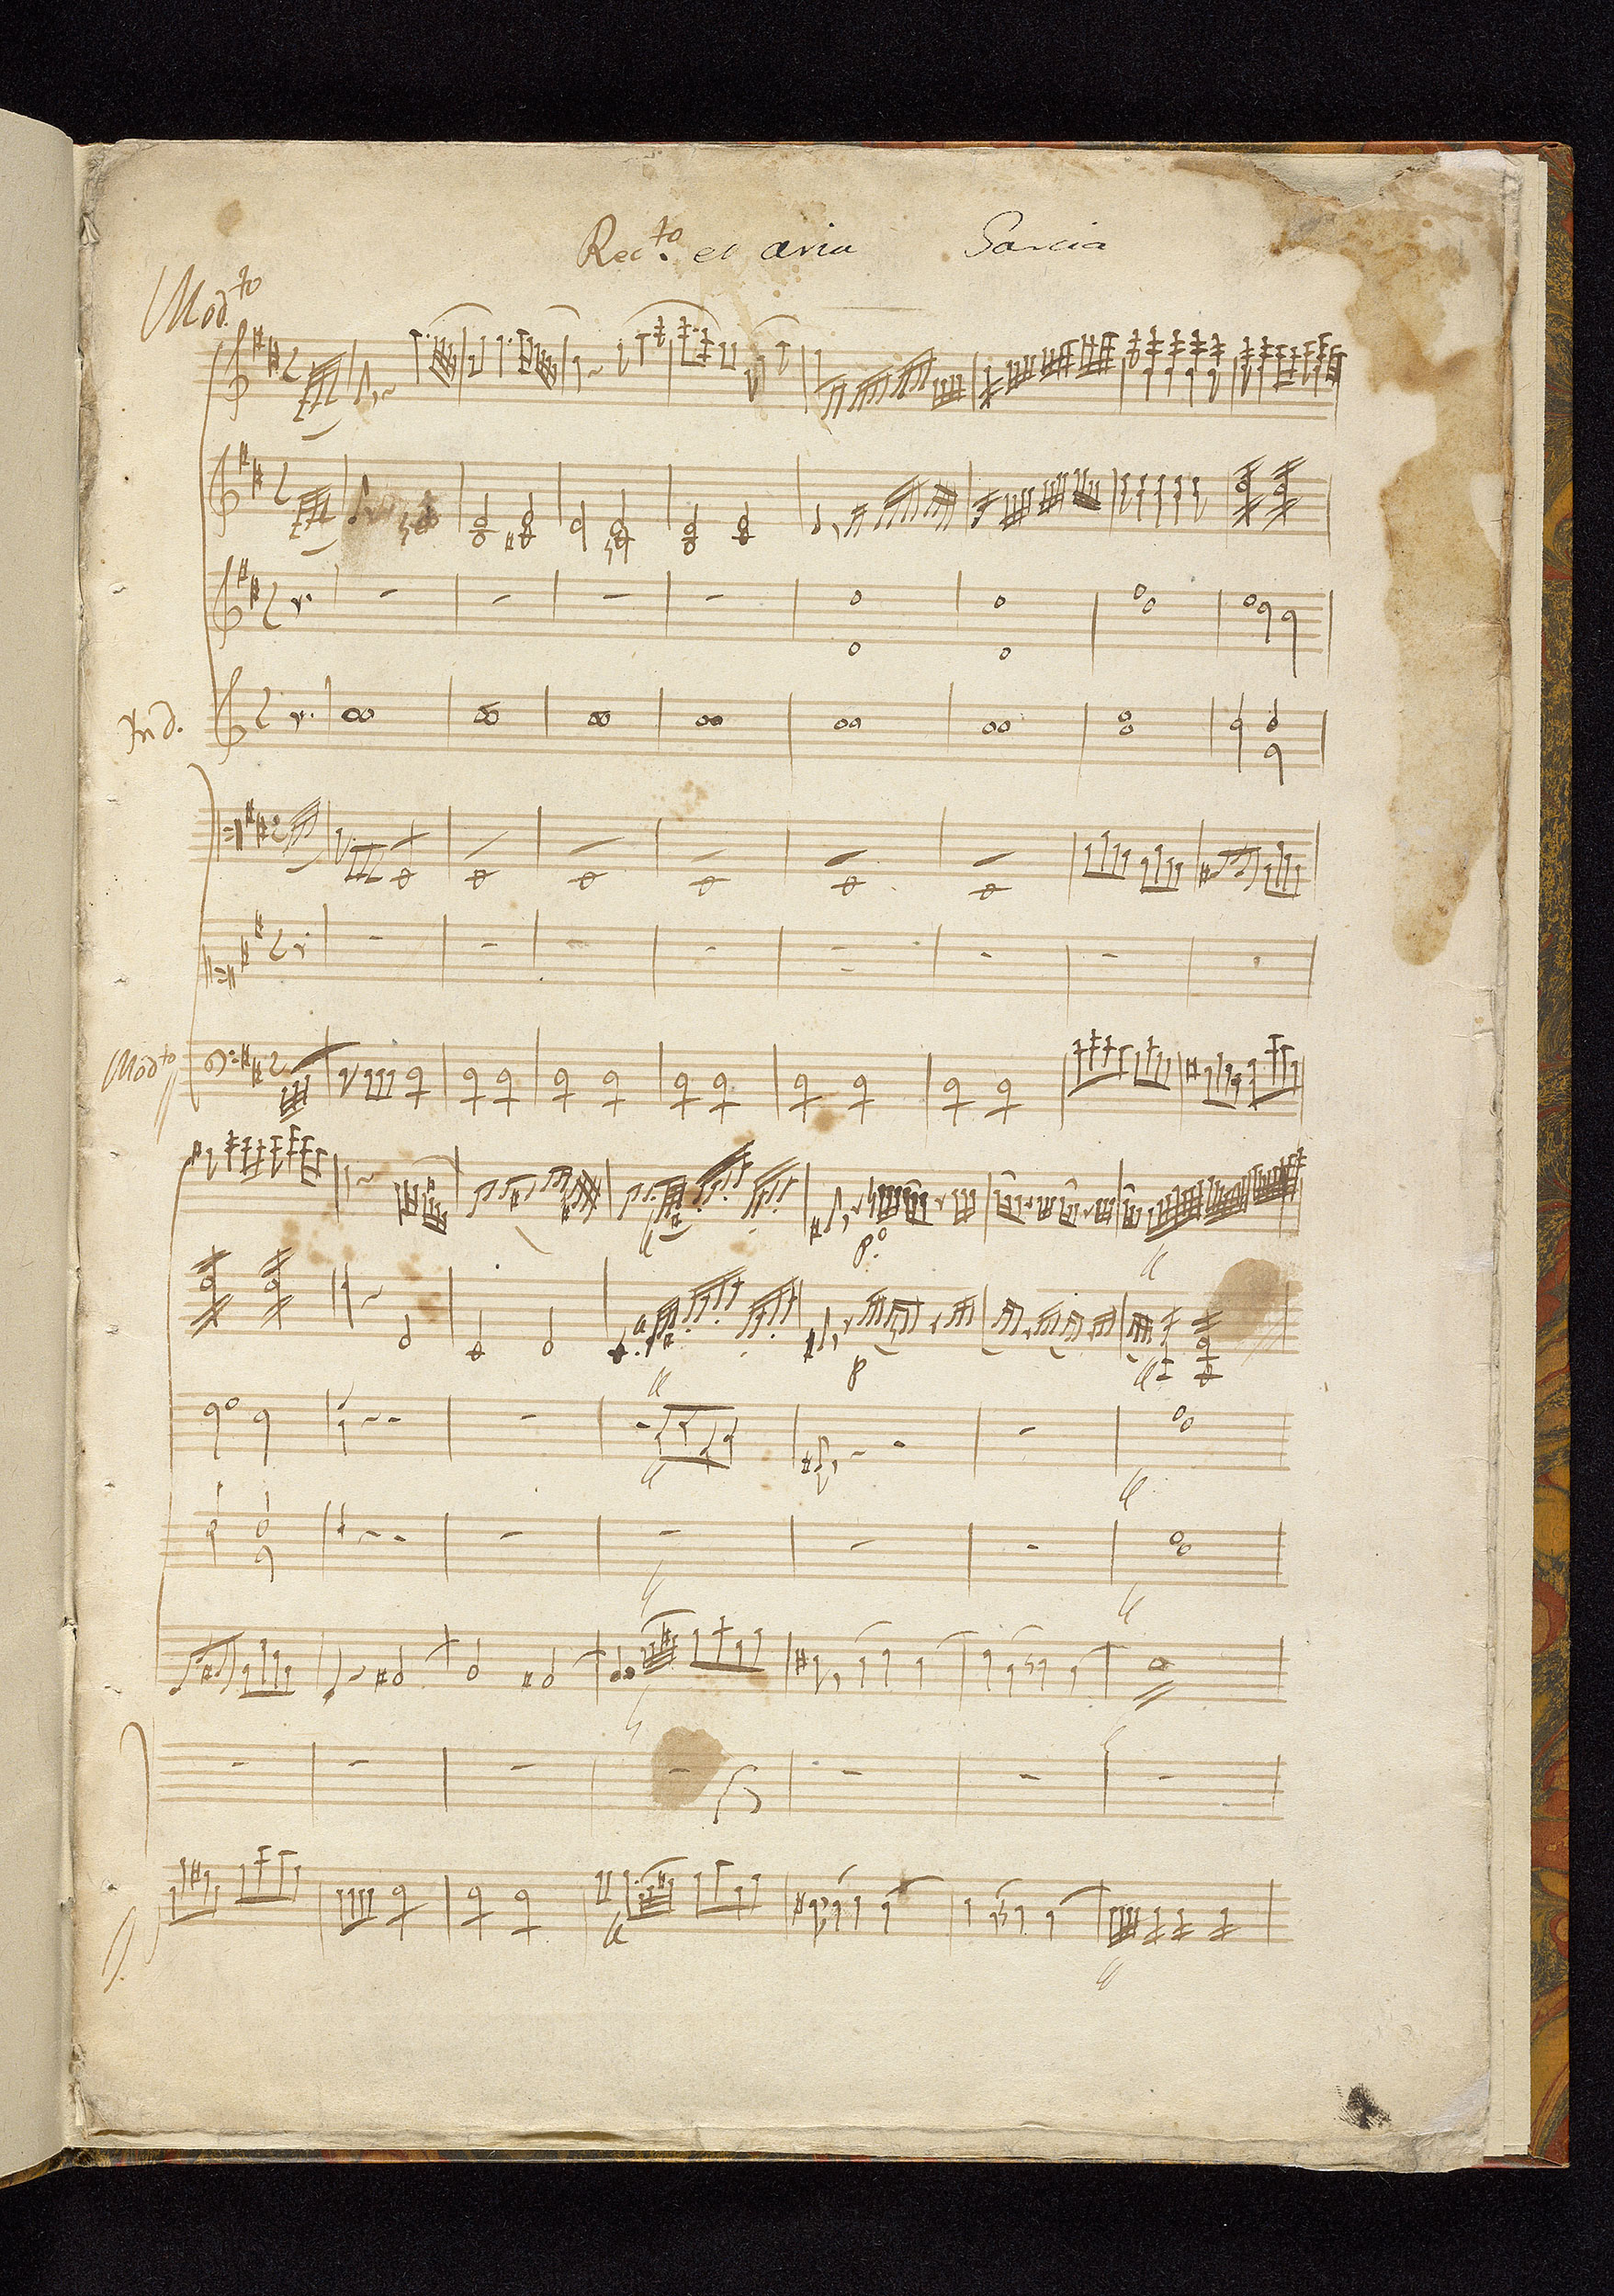 Rec.to et aria Garcia
Mod.to
In D.
Mod.to
p.o
p